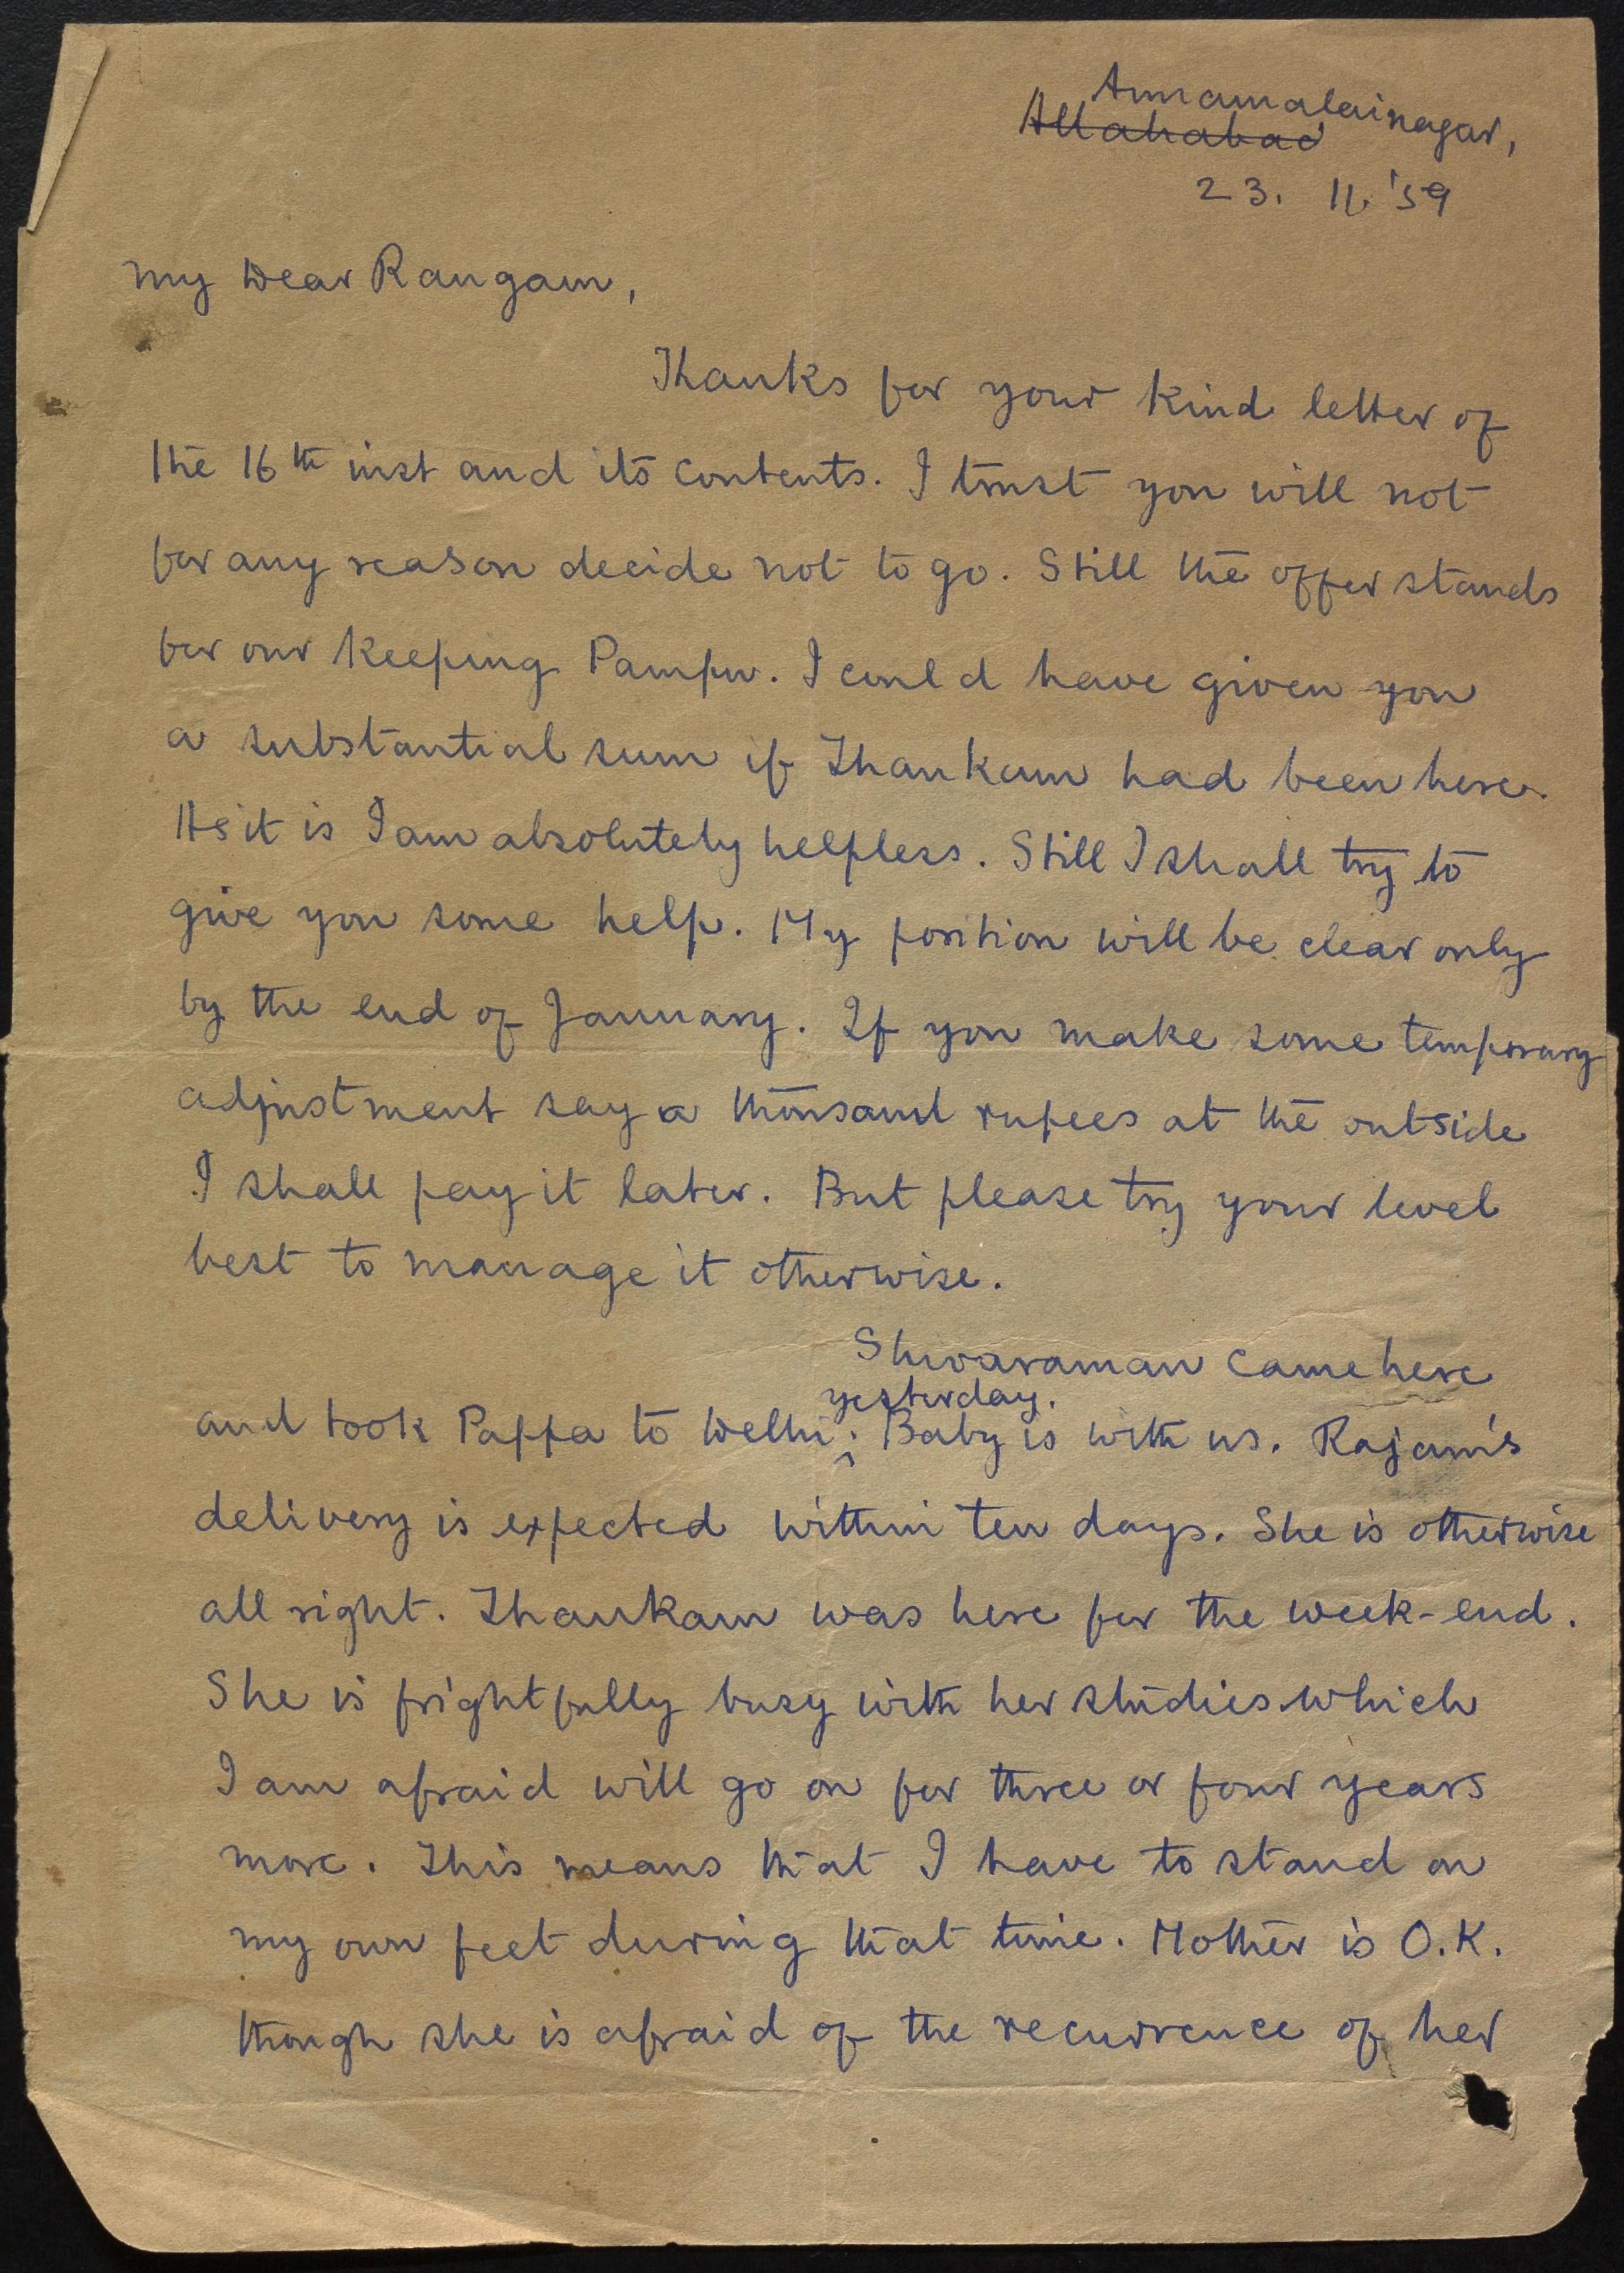 Annamalainagar,
Allahabad
23. 11. '59
My Dear Rangam,
Thanks for your kind letter of
the 16th inst and its contents. I trust you will not
for any reason decide not to go. Still the offer stands
for our keeping Pampu. I could have given you
a substantial sum if Thankam had been here.
As it is I am absolutely helpless. Still I shall try to
give you some help. My position will be clear only
by the end of January. If you make some temporary
adjustment say a thousand rupees at the outside
I shall pay it later. But please try your level
best to manage it otherwise.
Shivaraman came here
yesterday.
and took Pappa to Delhi; Baby is with us. Rajam's
delivery is expected within ten days. She is otherwise
all right. Thankam was here for the week-end.
She is frightfully busy with her studies which
I am afraid will go on for three or four years
more. This means that I have to stand on
my own feet during that time. Mother is O.K.
though she is afraid of the recurrence of her